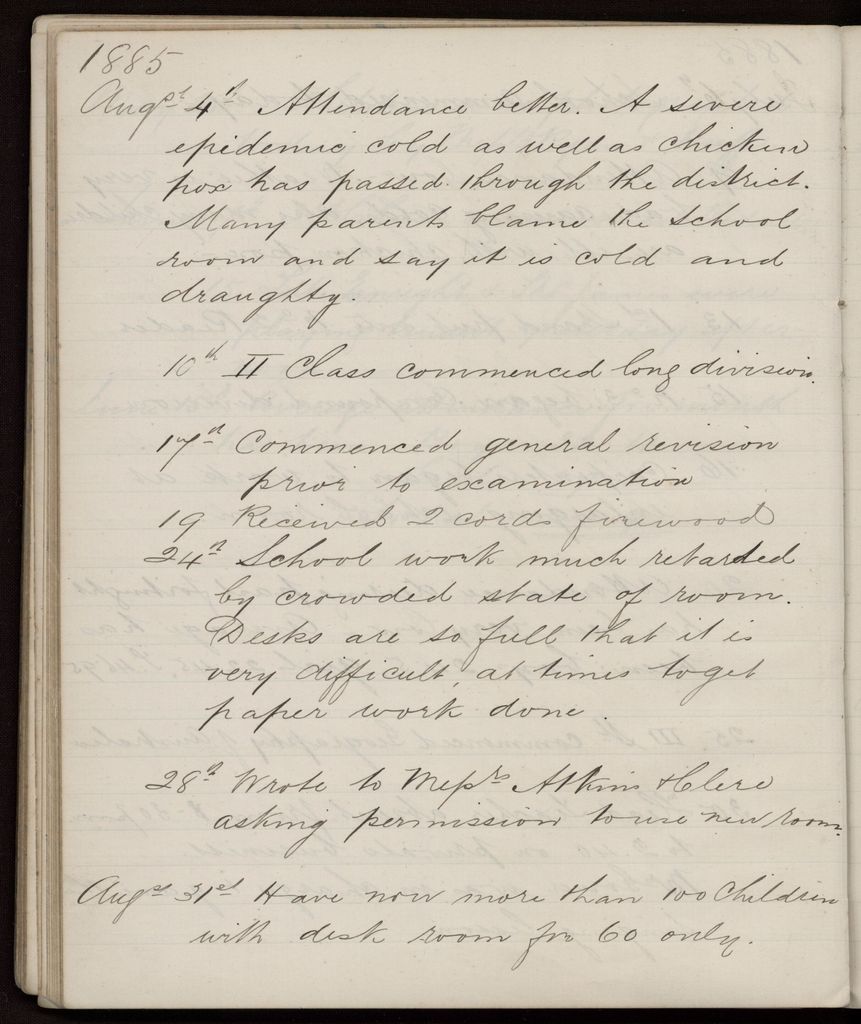 1885
Augst 4th Attendance better. A severe
epidemic cold as well as chicken
pox has passed through the district.
Many parents blame the School
room and say it is cold and
draughty.
10th II Class commenced long division.
17th Commenced general revision
prior to examination
19 Received 2 cords firewood
24th School work much retarded
by crowded state of room.
Desks are so full that it is
very difficult, at times to get
paper work done.
28th Wrote to Messrs Atkins & Clere
asking permission to use new room.
Augst 31st Have now more than 100 Children
with desk room for 60 only.